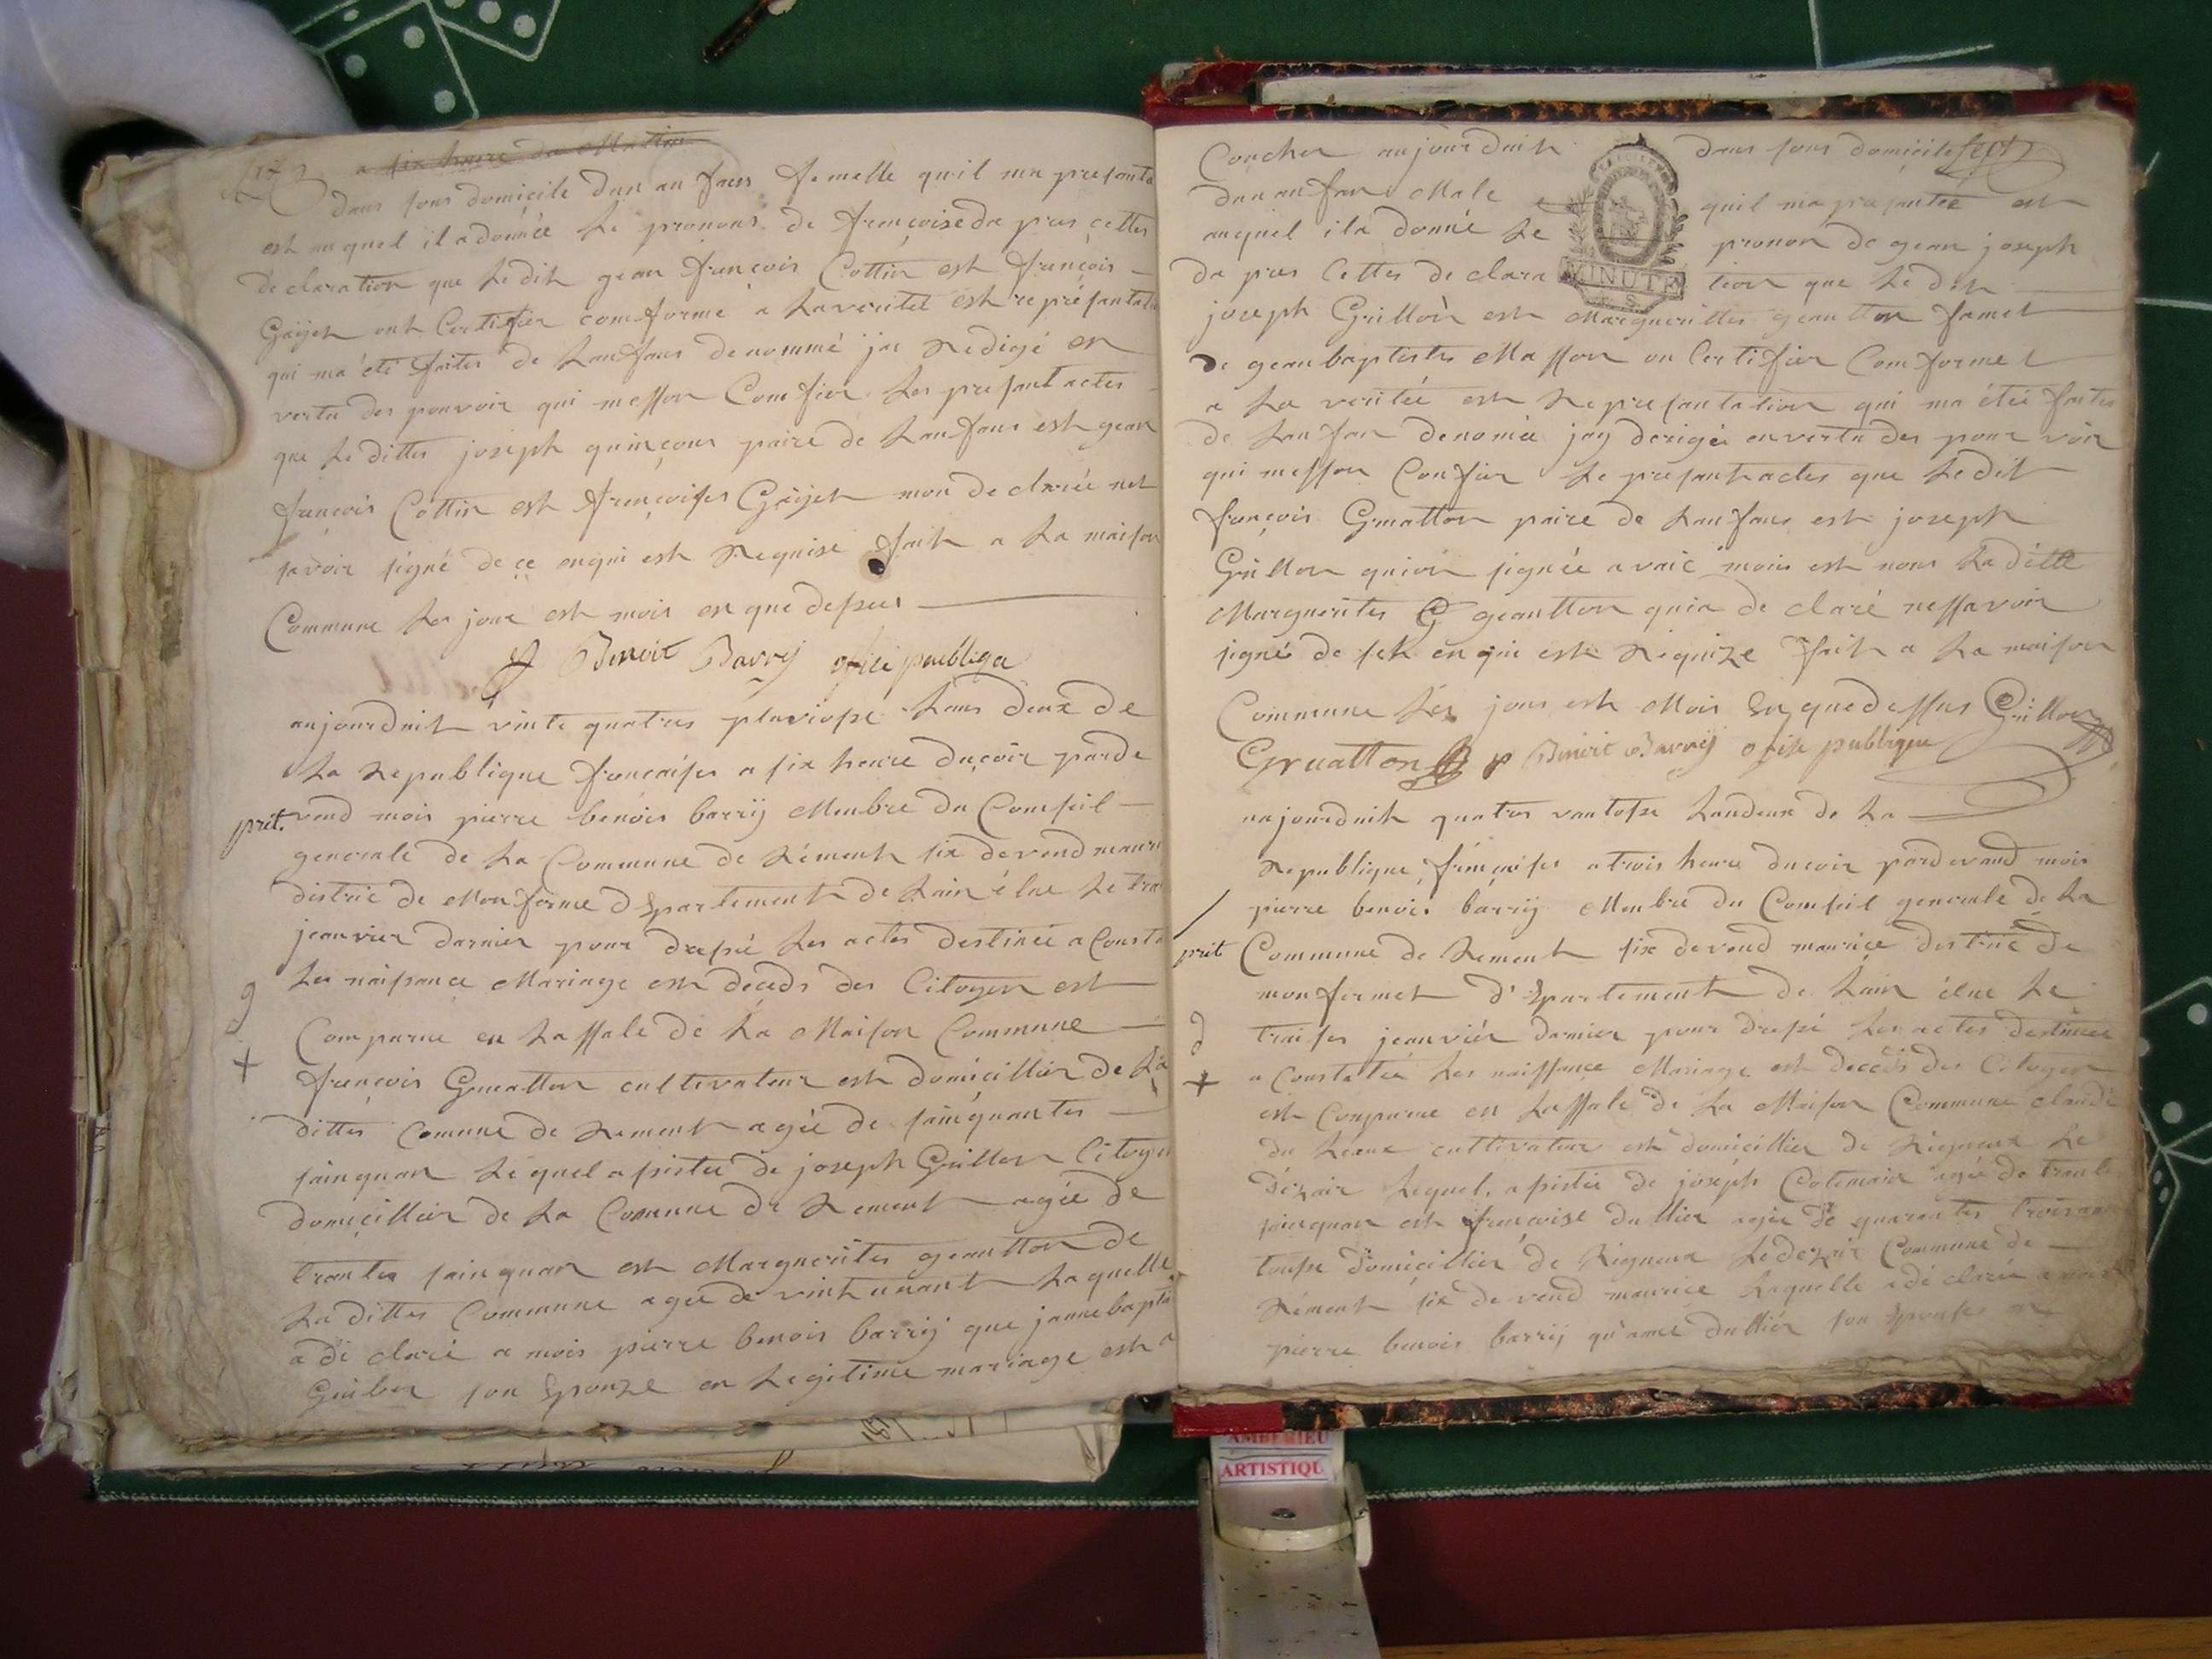 a six heure du Mattin
dans sons domicile dun an fans femelle quil ma presanta
est auquel il a donnée Le pronons de françoise da pres cettes
déclaration que Le dit gean françois Cottin est françois
Gayet ont Certifier comforme a Laveritet est représantat
qui ma été faites de Lanfans denommé jai Redigé en
vertu des pouvoir qui messon Comfier Les presant actes
que Le dittes joseph quinçons paire de Lanfans est gean
françois Cottin est françoises Gayet mon declarée net
savoir signé de ce enqui est Requise fait a La maison
Commune Les jour est mois en que depsus
p Benoit Barry ofice publique
aujourduit vinte quatres pluviose Lans deux de
La Republique françaises a six heure duçoir parde
prét. vend mois pierre benois barrÿ Menbre du Comseil
generale de La Commune de Rément six devend mauri
distric de Monferme d Epartement de Lain élue Le trai
jeanvier darnier pour drepsé Les actes destinée a Consta
Les naipsance Mariage est decéds des Citoyen est
g
Comparue en Lassale de La Maison Commune
+
françois Gruatton cultivateur est domicillier de La
dittes Comune de Rement agée de sainquantes
sainquan Lequel a sistée de joseph Guillon Citoyen
domicillier de La Comune de Rement agée de
trantes sainquan est Marguerites geautton de
La dittes Commune agée de vint unant Laquelle
a dé claré a mois pierre benois barrÿ que jannebaptis
Guiber son Epouze en Legitime mariage est a
Coucher aujourduit dans sons domicile
dun anfan Male quil ma présantée est
auquel il a donné Le pronon de gean joseph
da pres Cettes de clara tion que Le dit
MINUTE
joseph Guillon est Marguerittes geautton famet
de geanbaptistes Masson on Certifier Comformet
a La veritée est Represantation qui ma étée faites
de Lanfan denomée jay derigée envertu des pour voir
qui messon Confier Le présant actes que Le dit
françois Gruatton paire de Lanfans est joseph
Guillon quion signée avaic mois est nons La ditte
Marguerites G geautton quia de claré nessavoir
signé de sek enqui est Requize fait a La maison
Commune Les jous est Mois En que dessus Guillon
Gruatton p Benoit Barrÿ ofise publique
aujourduit quatres vantosse Landeux de La
Republique françaises atrois heure ducoir pardevand mois
pierre benois barrÿ Menbre du Comseil generale de La
prét Commune de Rement six devend maurice distric de
monfermet d'Epartement de Lain élue Le
traises jeanvier darnier pour drepsé Les actes destinées
d
a Constatée Les naissance Mariage est decéds des Citoyen
+
est Comparue en Lassale de La Maison Commune claude
du cultivateur est domicillier de Rigneux Le
dézair Lequel a sistée de joséph Cotemair agée de trante
sainquan est françoise Dullier agée de quarantes troisan
tousse domicillier de Rigneux Ledezair Commune de
Rément six de vend maurice Laquelle a dé clarée a mois
pierre benois barrÿ qu'amé dullier son Epouses an
AMBERIEU
ARTISTIQU